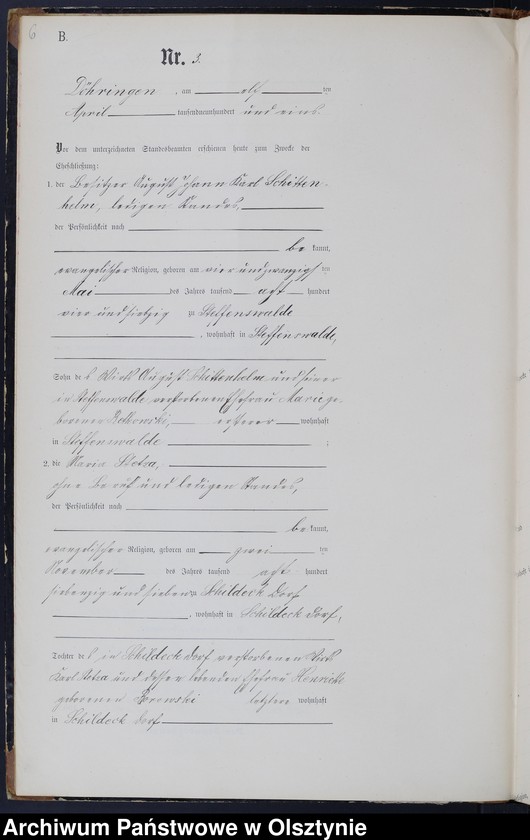 6
B.
Nr. 3.
Döhringen, am elf ten
April tausendneunhundert und eins.
Vor dem unterzeichneten Standesbeamten erschienen heute zum Zwecke der
Eheschließung:
1. der Besitzer August Johann Karl Schitten-
helm, ledigen Standes,
der Persönlichkeit nach
be kannt,
evangelischer Religion, geboren am vier und zwanzigsten
Mai des Jahres tausend acht hundert
vier und siebzig zu Steffenswalde
, wohnhaft in Steffenswalde,
Sohn des Wirth August Schittenhelm und seiner
in Steffenswalde verstorbenen Ehefrau Marie ge-
borener, ersterer wohnhaft
in Steffenswalde ;
2. die Maria
ohne Beruf und ledigen Standes,
der Persönlichkeit nach
be kannt,
evangelischer Religion, geboren am zwei ten
November des Jahres tausend acht hundert
siebenzig und sieben zu Schildeck Dorf
, wohnhaft in Schildeck Dorf,
Tochter des in Schildeck Dorf verstorbenen Wirth
Karl und dessen lebenden Ehefrau Henriette
geborenen letztere wohnhaft
in Schildeck Dorf
Archiwum Państwowe w Olsztynie